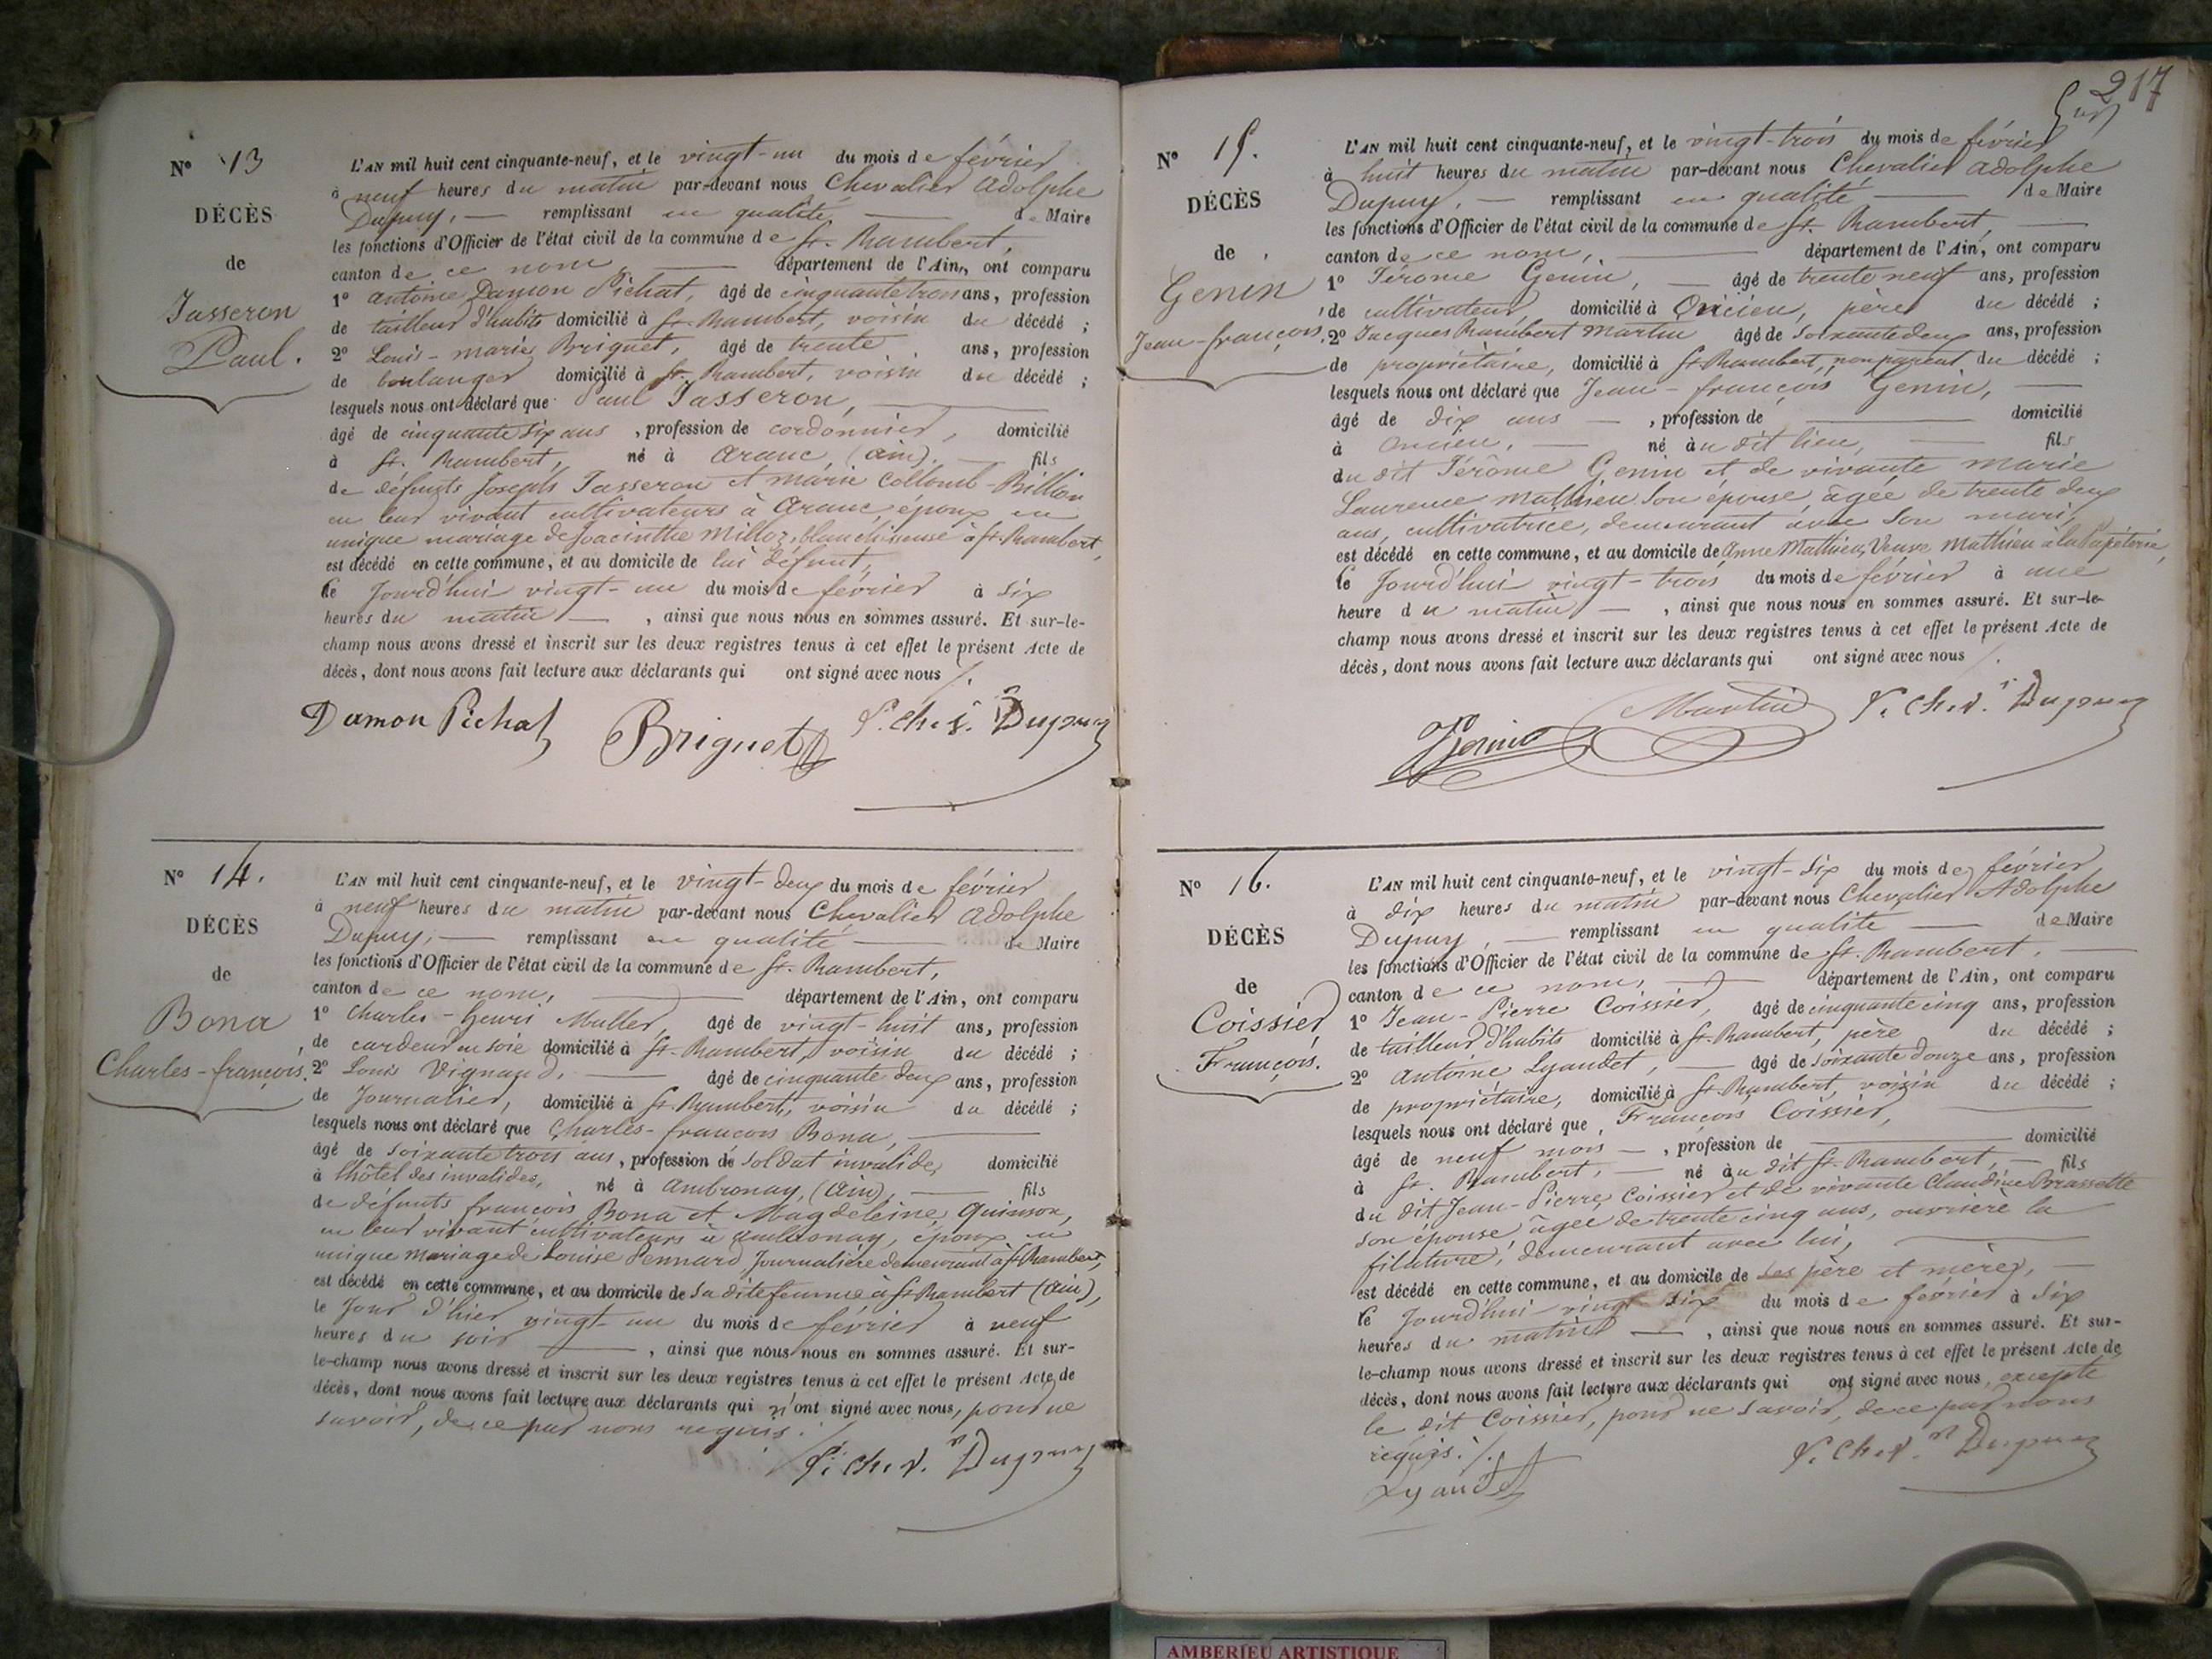 Nº 13
DÉCÈS
de
Jasseron
Paul.
L'AN mil huit cent cinquante-neuf, et le vingt-un du mois de février
à neuf heures du matin par-devant nous Chevalier Adolphe
Dupuy, — remplissant en qualité — de Maire
les fonctions d'Officier de l'état civil de la commune de St. Rambert,
canton de ce nom — département de l'Ain, ont comparu
1º Antoine Damon Pichat, âgé de cinquante trois ans, profession
de tailleur d'habits domicilié à St. Rambert, voisin du décédé ;
2º Louis-marie Briguet, âgé de trente ans, profession
de boulanger domicilié à St. Rambert, voisin du décédé ;
lesquels nous ont déclaré que Paul Jasseron, —
âgé de cinquante six ans, profession de cordonnier, domicilié
à St. Rambert, né à Aranc, (ain), — fils
de défunts Joseph Jasseron et marie Collomb-Billion
en leur vivant cultivateurs à Aranc, époux en
unique mariage de hyacinthe Milloz, blanchisseuse à St. Rambert,
est décédé en cette commune, et au domicile de lui défunt,
le Jourd'hui vingt-un du mois de février à six
heures du matin —, ainsi que nous nous en sommes assuré. Et sur-le-
champ nous avons dressé et inscrit sur les deux registres tenus à cet effet le présent Acte de
décès, dont nous avons fait lecture aux déclarants qui ont signé avec nous ./.
Damon Pichat Briguet Dupuy
Nº 14.
DÉCÈS
de
Bona
Charles-françois.
L'AN mil huit cent cinquante-neuf, et le vingt-deux du mois de février
à neuf heures du matin par-devant nous Chevalier Adolphe
Dupuy, — remplissant en qualité — de Maire
les fonctions d'Officier de l'état civil de la commune de St. Rambert,
canton de ce nom, — département de l'Ain, ont comparu
1º Charles-henri Muller, âgé de vingt-huit ans, profession
de cardeur en soie domicilié à St. Rambert, voisin du décédé ;
2º Louis Vignaud, — âgé de cinquante deux ans, profession
de Journalier, domicilié à St. Rambert, voisin du décédé ;
lesquels nous ont déclaré que Charles-françois Bona, —
âgé de soixante trois ans, profession de soldat invalide, domicilié
à l'hôtel des invalides, né à Ambronay, (ain), — fils
de défunts françois Bona et Magdeleine Quinson,
en leur vivant cultivateurs à Ambronay, époux en
unique mariage de Louise Pennard, Journalière demeurant à St. Rambert,
est décédé en cette commune, et au domicile de sa dite femme à St. Rambert (ain),
le Jour d'hier vingt-un du mois de février à neuf
heures du soir —, ainsi que nous nous en sommes assuré. Et sur-
le-champ nous avons dressé et inscrit sur les deux registres tenus à cet effet le présent Acte de
décès, dont nous avons fait lecture aux déclarants qui n'ont signé avec nous, pour ne
savoir, de ce par nous requis.
Dupuy
217
Nº 15.
DÉCÈS
de
Genin
Jean-françois.
L'AN mil huit cent cinquante-neuf, et le vingt-trois du mois de février
à huit heures du matin par-devant nous Chevalier Adolphe
Dupuy, — remplissant en qualité — de Maire
les fonctions d'Officier de l'état civil de la commune de St. Rambert, —
canton de ce nom, — département de l'Ain, ont comparu
1º Jérome Genin, — âgé de trente neuf ans, profession
de cultivateur, domicilié à Oncieu, père du décédé ;
2º Jacques Rambert Martin âgé de soixante deux ans, profession
de propriétaire, domicilié à St. Rambert, non parent du décédé ;
lesquels nous ont déclaré que Jean-françois Genin, —
âgé de dix ans —, profession de — domicilié
à Oncieu, — né au dit lieu, — fils
du dit Jérôme Genin et de vivante marie
Laurence Mathieu son épouse, âgée de trente deux
ans, cultivatrice, demeurant avec son mari,
est décédé en cette commune, et au domicile de Anne Mathieu, Veuve Mathieu à la Papeterie,
le Jourd'hui vingt-trois du mois de février à une
heure du matin —, ainsi que nous nous en sommes assuré. Et sur-le-
champ nous avons dressé et inscrit sur les deux registres tenus à cet effet le présent Acte de
décès, dont nous avons fait lecture aux déclarants qui ont signé avec nous ./.
Genin Martin Dupuy
Nº 16.
DÉCÈS
de
Coissier
François.
L'AN mil huit cent cinquante-neuf, et le vingt-six du mois de février
à dix heures du matin par-devant nous Chevalier Adolphe
Dupuy, — remplissant en qualité — de Maire
les fonctions d'Officier de l'état civil de la commune de St. Rambert, —
canton de ce nom, — département de l'Ain, ont comparu
1º Jean-Pierre Coissier, âgé de cinquante cinq ans, profession
de tailleur d'habits domicilié à St. Rambert, père du décédé ;
2º Antoine Lyaudet, — âgé de soixante douze ans, profession
de propriétaire, domicilié à St. Rambert, voisin du décédé ;
lesquels nous ont déclaré que François Coissier, —
âgé de neuf mois —, profession de — domicilié
à St. Rambert, — né au dit St. Rambert, — fils
du dit Jean-Pierre Coissier et de vivante Claudine Brassette
son épouse, âgée de trente cinq ans, ouvrière la
filature, demeurant avec lui, —
est décédé en cette commune, et au domicile de ses père et mère, —
le Jourd'hui vingt six du mois de février à six
heures du matin —, ainsi que nous nous en sommes assuré. Et sur-
le-champ nous avons dressé et inscrit sur les deux registres tenus à cet effet le présent Acte de
décès, dont nous avons fait lecture aux déclarants qui ont signé avec nous, excepté
le dit Coissier, pour ne savoir, de ce par nous
requis ./.
Lyaudet Dupuy
AMBERIEU ARTISTIQUE